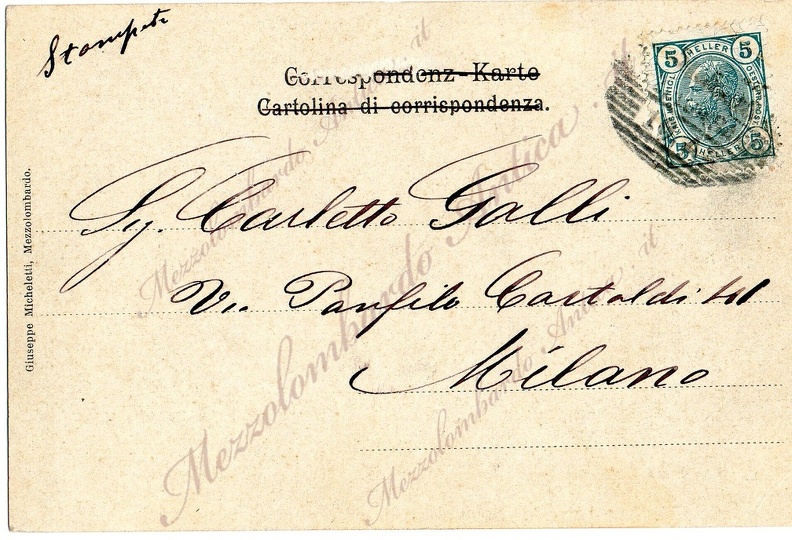 Stampate
Correspondenz-Karte
Cartolina di corrispondenza.
5 HELLER 5
KAIS. KÖNIGL. OESTERR. POST.
5 HELLER 5
Sg. Carletto Galli
Via Panfilo Castaldi 41
Milano
Giuseppe Micheletti, Mezzolombardo.
Mezzolombardo Antica .it
Mezzolombardo Antica .it
Mezzolombardo Antica .it